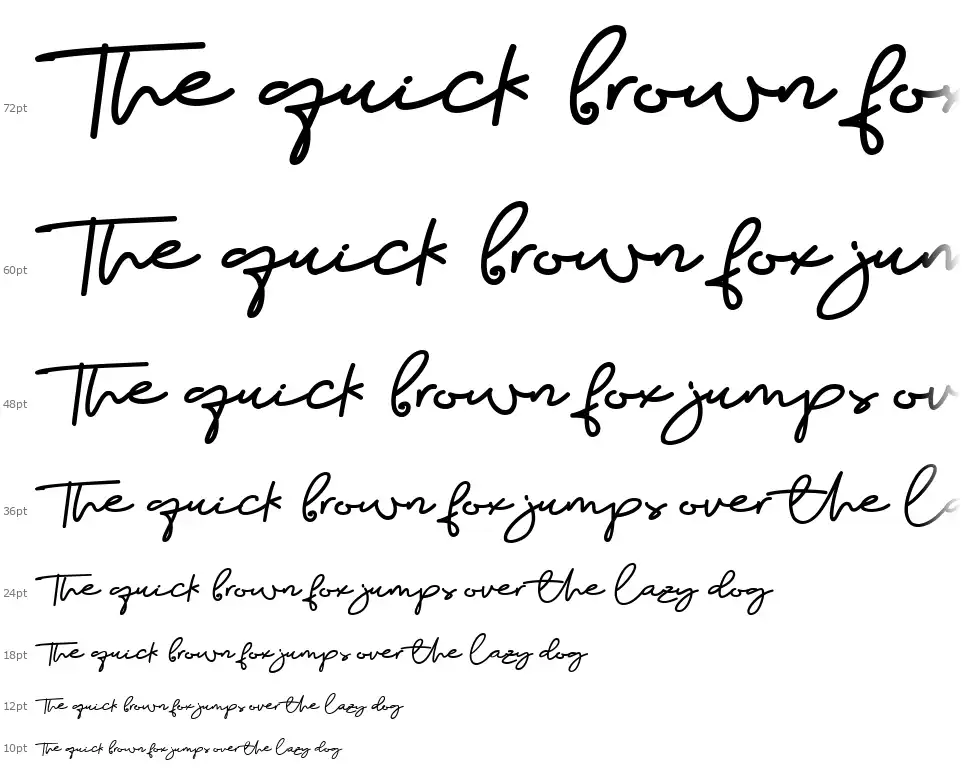 72pt The quick brown fox
60pt The quick brown fox jum
48pt The quick brown fox jumps ov
36pt The quick brown fox jumps over the la
24pt The quick brown fox jumps over the lazy dog
18pt The quick brown fox jumps over the lazy dog
12pt The quick brown fox jumps over the lazy dog
10pt The quick brown fox jumps over the lazy dog